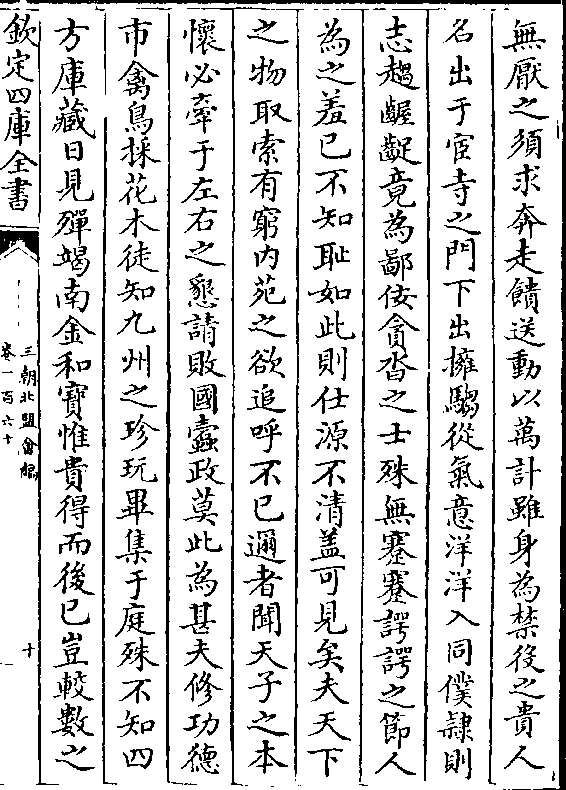 無厭之須求奔走饋送動以萬計雖身為禁從之貴人
名出于宦寺之門下出擁騶從氣意洋洋入同僕隸則
志趨齷齪竟為鄙佞貪沓之士殊無蹇蹇諤諤之節人
為之羞已不知恥如此則仕源不清盖可見矣夫天下
之物取索有窮内苑之欲追呼不已邇者聞天子之本
懷必牽于左右之懇請敗國蠧政莫此為甚夫修功德
市禽鳥採花木徒知九州之珍玩畢集于庭殊不知四
方庫藏日見殫竭南金和寶惟貴得而後已豈較數之
欽定四庫全書
三朝北盟會編
卷一百六十
十